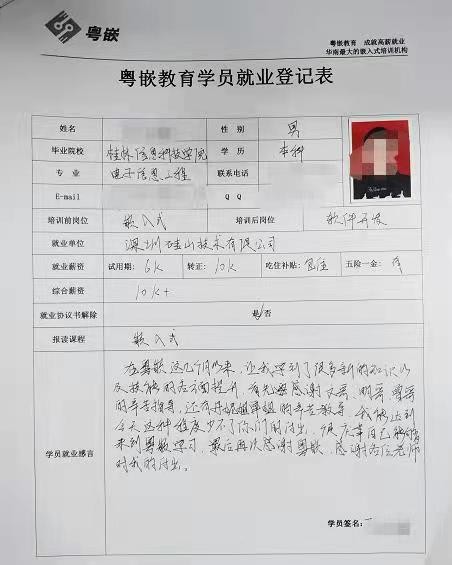 粤嵌
粤嵌教育 成就高薪就业
华南最大的嵌入式培训机构
粤嵌教育学员就业登记表
姓名 性 别 男
毕业院校 桂林信息科技学院 学 历 本科
专 业 电子信息工程 联系电话
E-mail Q Q
培训前岗位 嵌入式 培训后岗位 软件开发
就业单位 深圳硅山技术有限公司
就业薪资 试用期: 6k 转正: 10k 吃住补贴: 包住 五险一金: 有
综合薪资 10k+
就业协议书解除 是/否
报读课程 嵌入式
在粤嵌这几个月以来,让我学到了很多新的知识以
及技能的各方面提升,首先要感谢文哥、明哥、曾哥
的辛苦指导,还有丹妮姐
的辛苦教导,我能达到
今天这种程度少不了你们的付出,很庆幸自己能够
来到粤嵌学习,最后再次感谢粤嵌,感谢各位老师
对我的付出。
学员就业感言
学员签名: